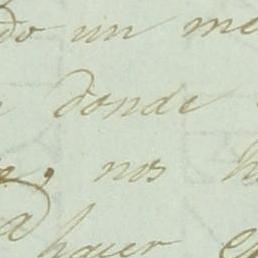 do un me
donde
nos h
hacer